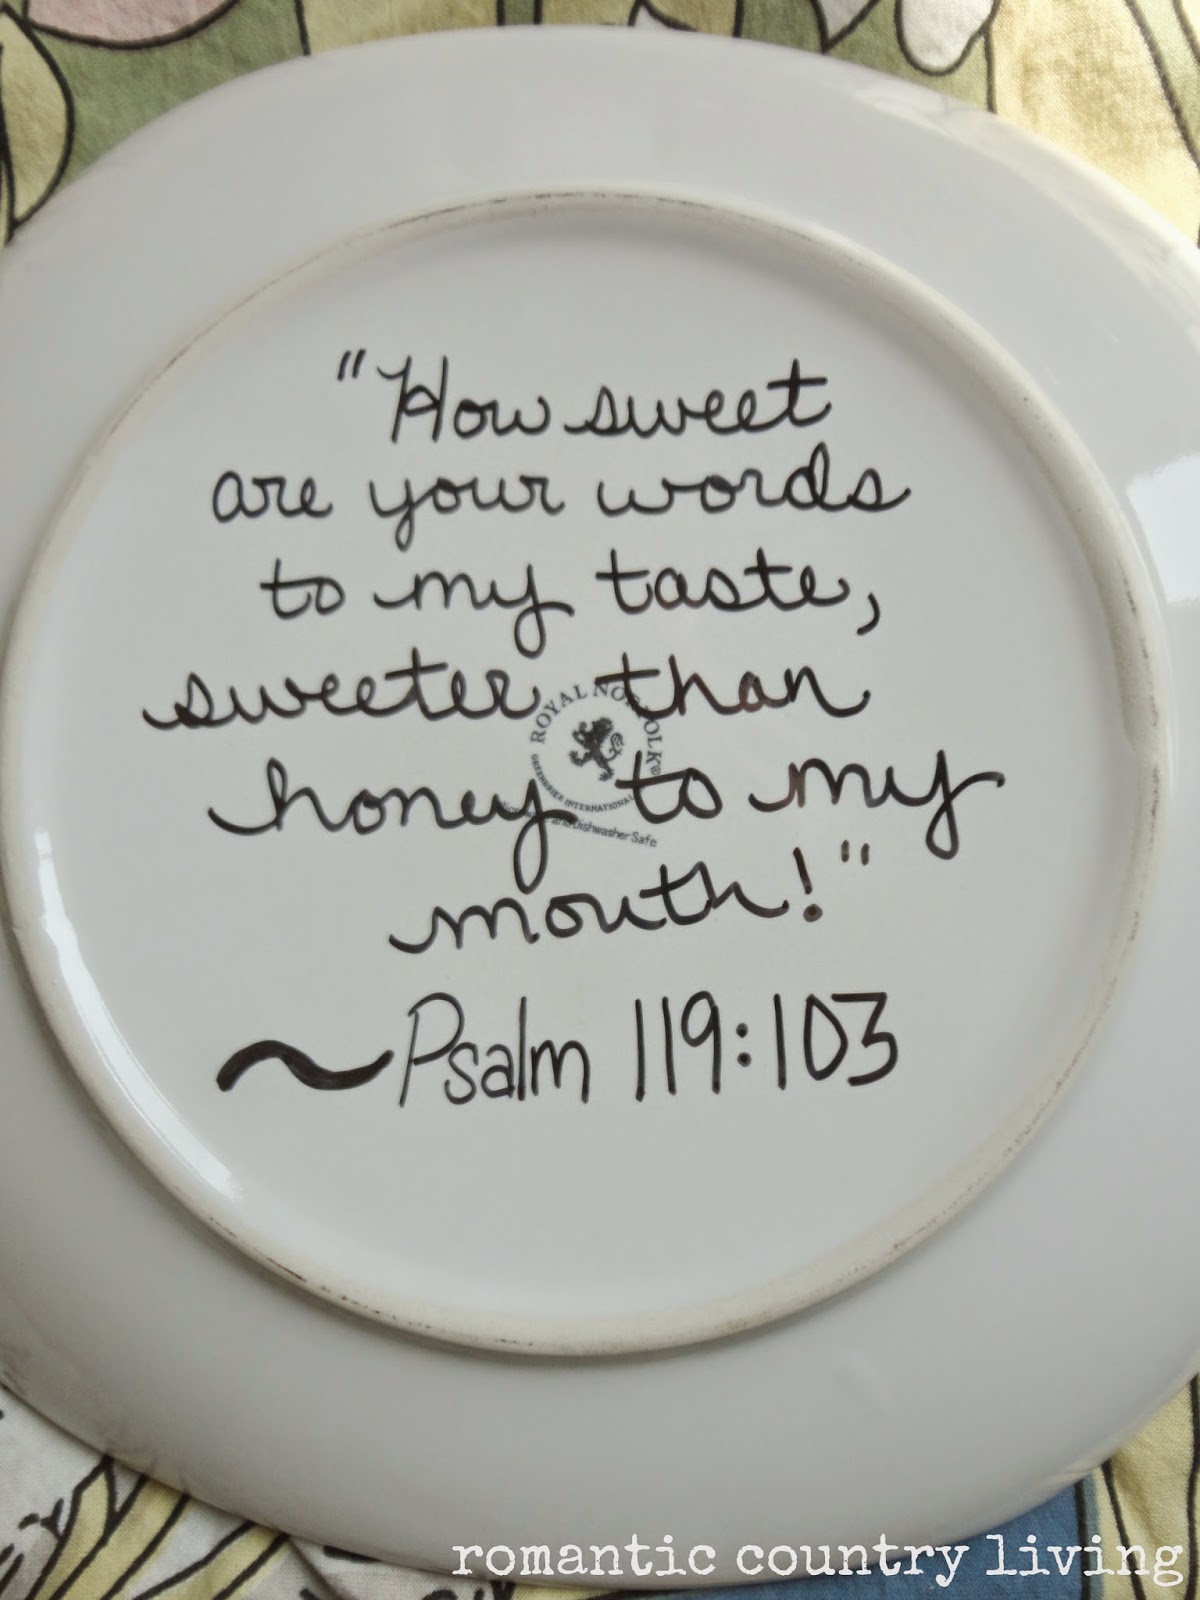 "How sweet
are your words
to my taste,
sweeter than
honey to my
mouth!"
~Psalm 119:103
ROYAL NORFOLK®
GREENBRIER INTERNATIONAL
and Dishwasher Safe
romantic country living